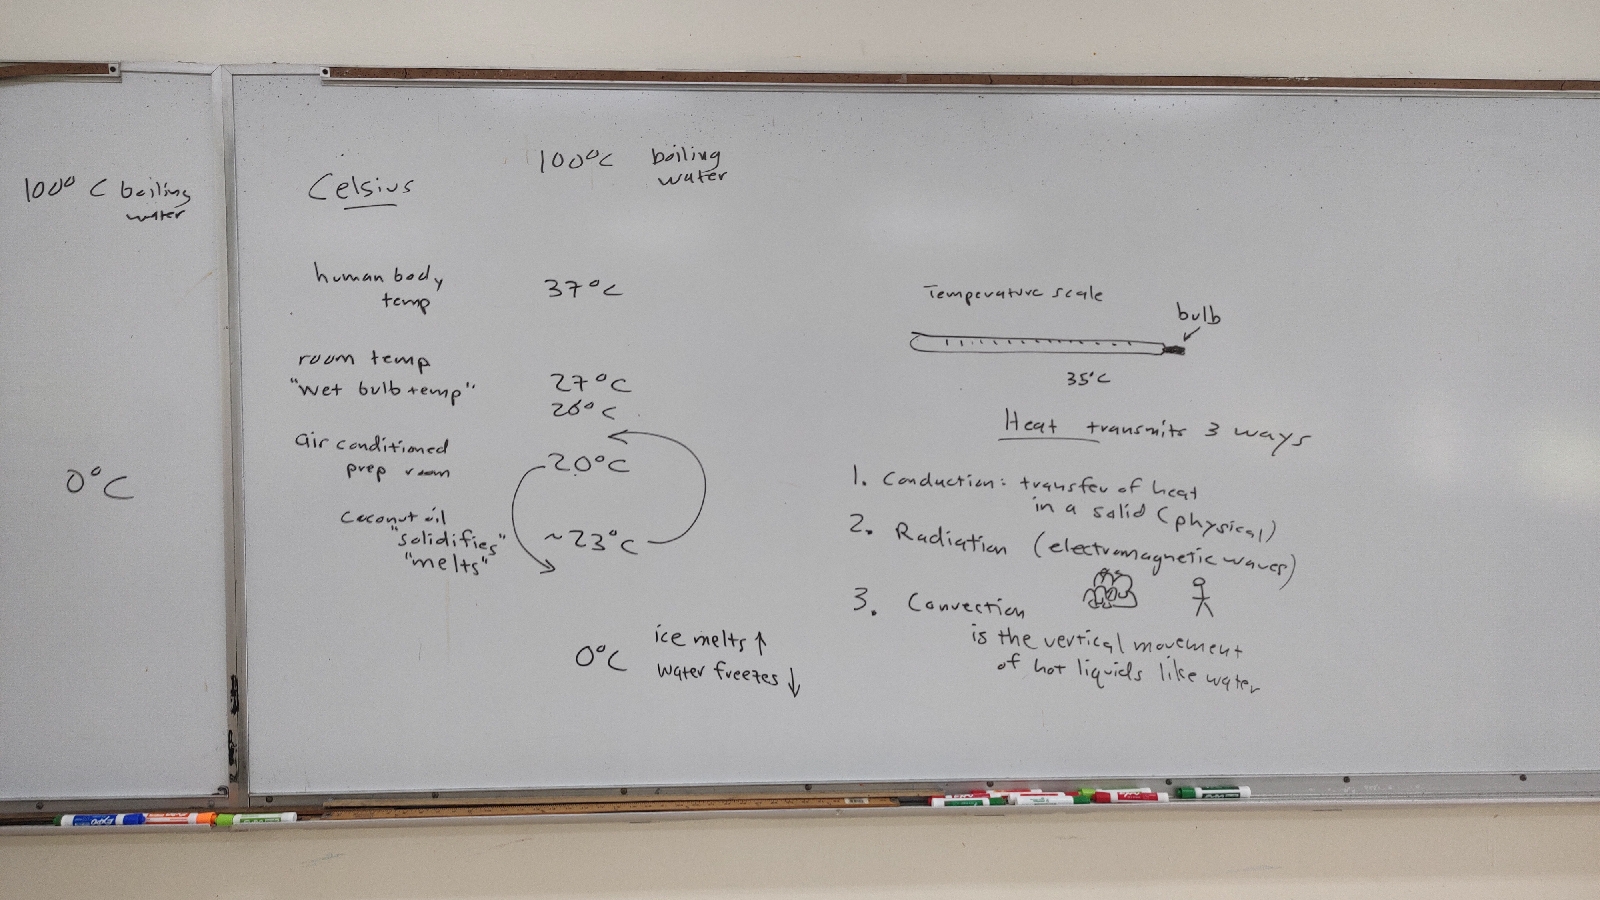 100°C boiling
water
0°C
Celsius
100°C boiling
water
human body
temp
37°C
room temp
"wet bulb temp"
27°C
26°C
air conditioned
prep room
20°C
coconut oil
"solidifies"
"melts"
~23°C
0°C
ice melts ↑
water freezes ↓
Temperature scale
bulb
35°C
Heat transmits 3 ways
1. Conduction: transfer of heat
in a solid (physical)
2. Radiation (electromagnetic waves)
3. Convection
is the vertical movement
of hot liquids like water
EXPO